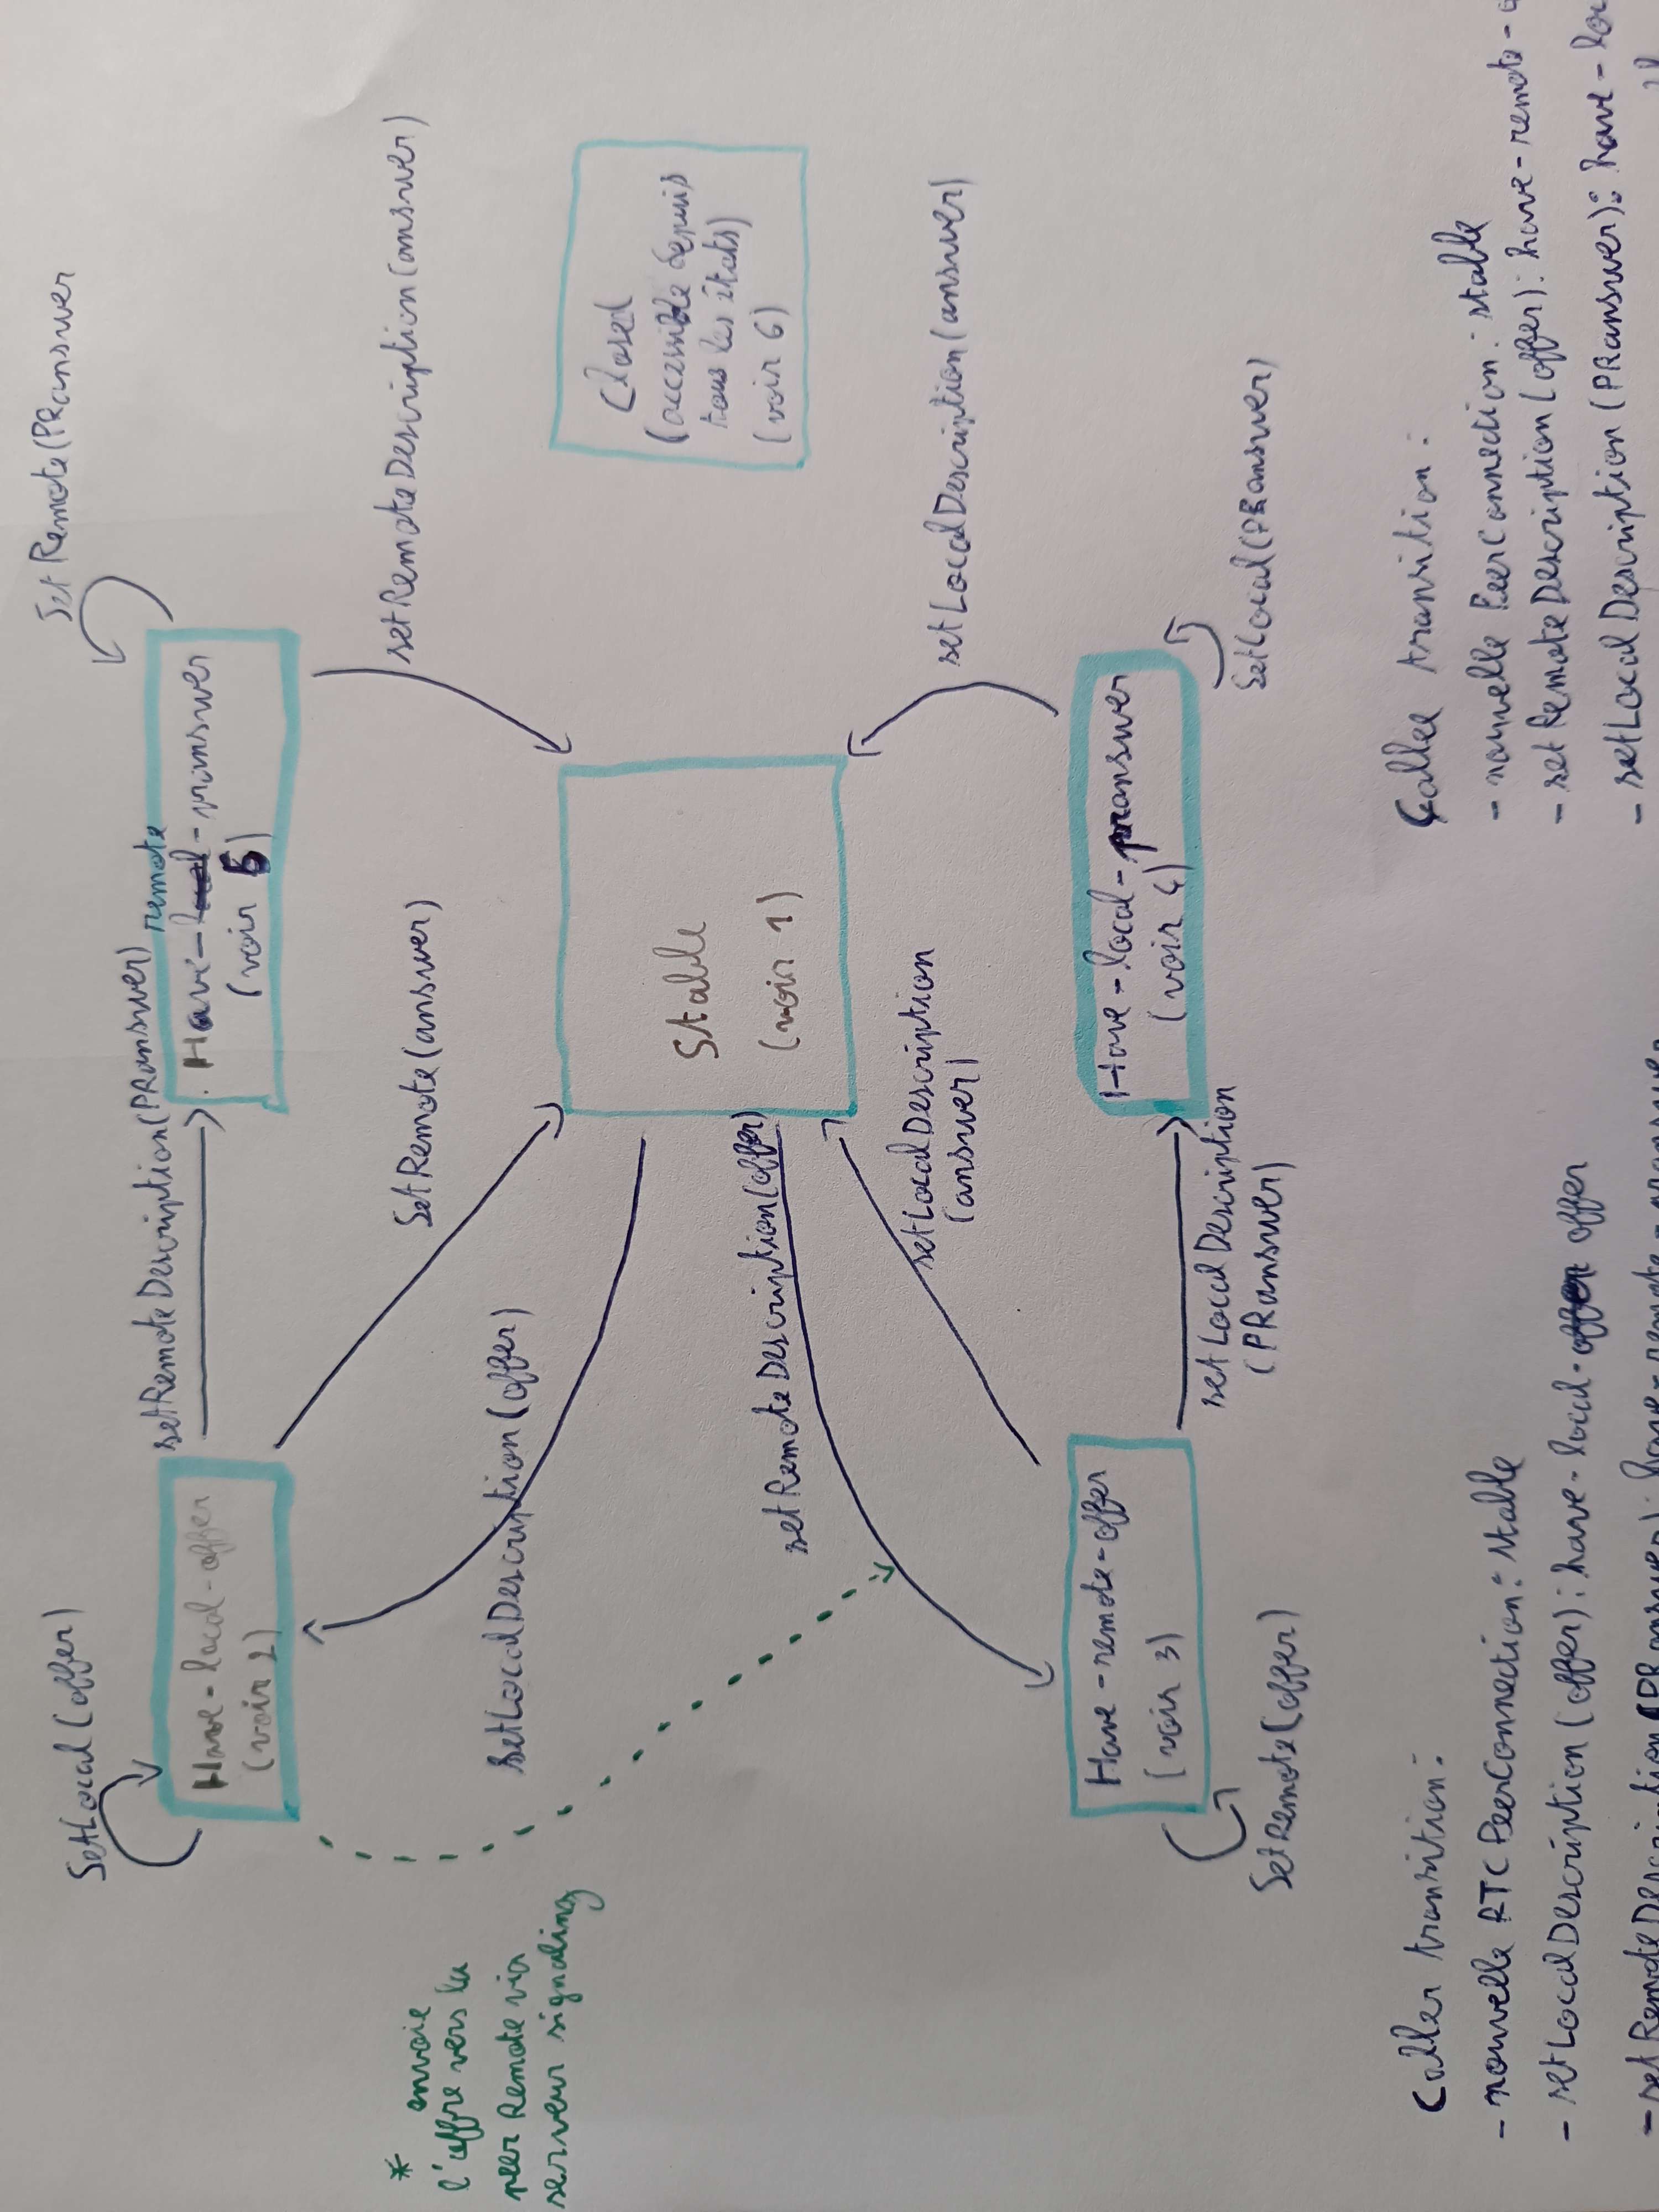 SetLocal(offer)
Set Remote(PRanswer
setRemoteDescription(PRanswer)
remote
Have-local-offer
(voir 2)
Have-local-pranswer
(voir 5)
* envoie
l'offre vers la
peer Remote via
serveur signaling
SetRemote(answer)
setRemoteDescription(answer)
SetLocalDescription(offer)
Closed
(accessible depuis
tous les états)
(voir 6)
Stable
(voir 1)
setRemoteDescription(offer)
setLocalDescription
(answer)
setLocalDescription(answer)
Have-remote-offer
(voir 3)
Have-local-pranswer
(voir 4)
setLocalDescription
(PRanswer)
SetRemote(offer)
SetLocal(PRanswer)
Caller transition:
- nouvelle RTCPeerConnection: stable
- setLocalDescription(offer): have-local-offer offer
- setRemoteDescription(PRanswer): have-remote-pranswer
Callee transition:
- nouvelle PeerConnection: stable
- setRemoteDescription(offer): have-remote-o
- setLocalDescription(PRanswer): have-loc